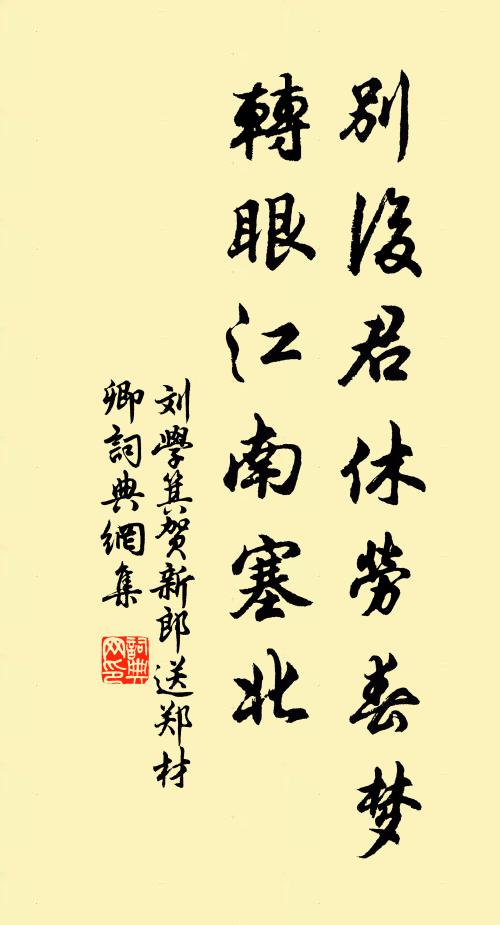 别後君休劳春梦
轉眼江南塞北
刘學箕贺新郎送郑材
卿詞典網集
詞典
网印